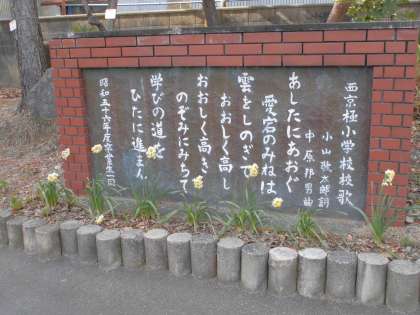 西京極小学校校歌
小山敬太郎詞
中原邦男曲
あしたにあおぐ
愛宕のみねは
雲をしのぎて
おおしく高し
おおしく高き
のぞみにみちて
学びの道を
ひたに進まん
昭和五十六年度卒業生一同